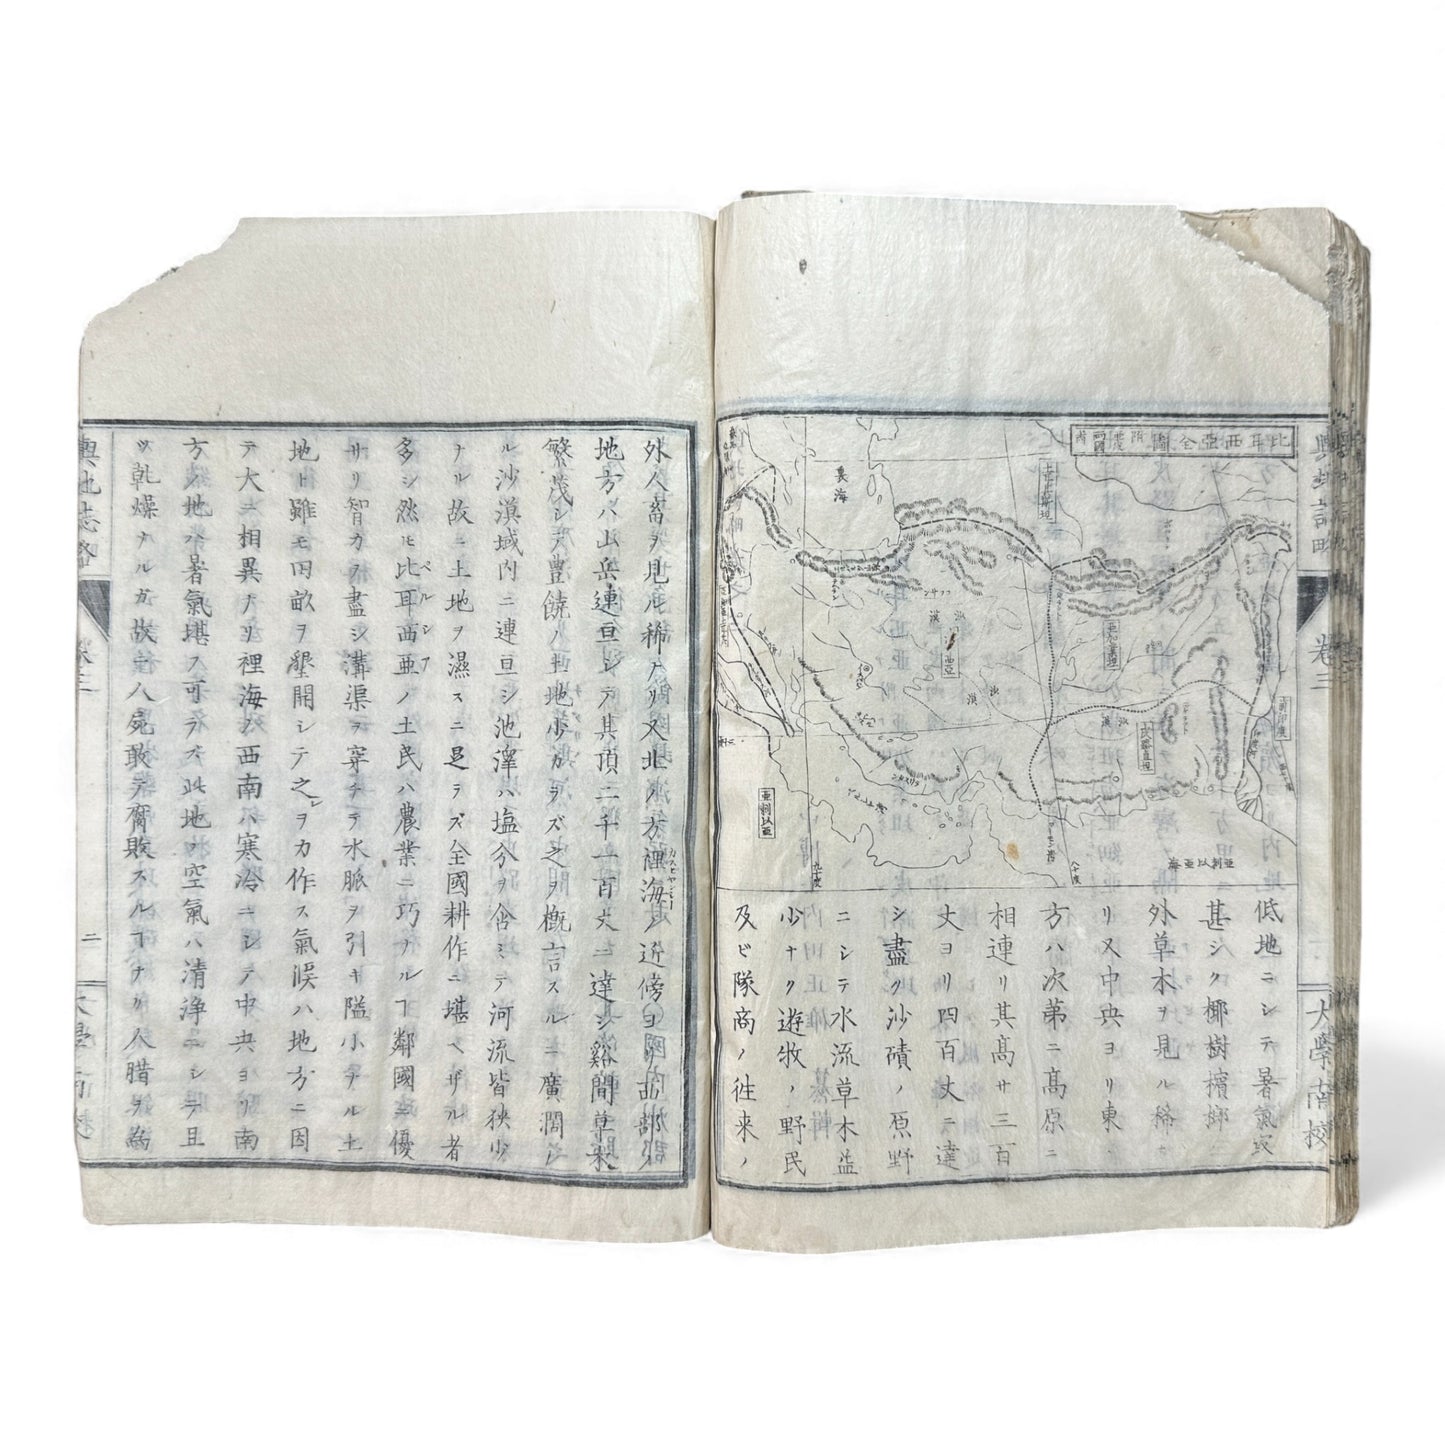 輿地誌略
卷三
大學南校
比耳西亞全圖附屬兩國
裏海
亞剌以亞
亞剌以亞海
低地ニシテ暑氣最
甚シク椰樹檳榔ノ
外草木ヲ見ル稀ナ
リ又中央ヨリ東ノ
方ハ次第ニ高原ニ
相連リ其高サ三百
丈ヨリ四百丈ニ達
シ盡ク沙磧ノ原野
ニシテ水流草木益
少ナク遊牧ノ野民
及ビ隊商ノ往来ノ
外人畜ヲ見ル稀ナリ又北ノ方裡海ノ近傍ヨリ西部ノ
地方ハ山岳連亘シテ其頂二千一百丈ニ達シ谿間草木
繁茂シテ豊饒ノ地少カラズ之ヲ概言スルニ廣濶ナ
ル沙漠域内ニ連亘シ池澤ハ塩分ヲ含ミテ河流皆狹少
ナル故ニ土地ヲ濕スニ足ラズ全國耕作ニ堪ヘザル者
多シ然ルニ比耳西亞ノ土民ハ農業ニ巧ナルヿ鄰國ニ優
サリ智力ヲ盡シ溝渠ヲ穿チテ水脈ヲ引キ隘小ナル土
地ト雖モ田畝ヲ墾開シテ之レヲカ作ス氣候ハ地方ニ因
テ大ニ相異ナリ裡海ノ西南ハ寒冷ニシテ中央ヨリ南
方ノ地ハ暑氣堪フ可ラズ此地ノ空氣ハ清浄ニシテ且
ツ乾燥ナルガ故ニ人屍敢テ腐敗スルヿナク人腊ヲ為
輿地誌略
卷三
二
大學南校